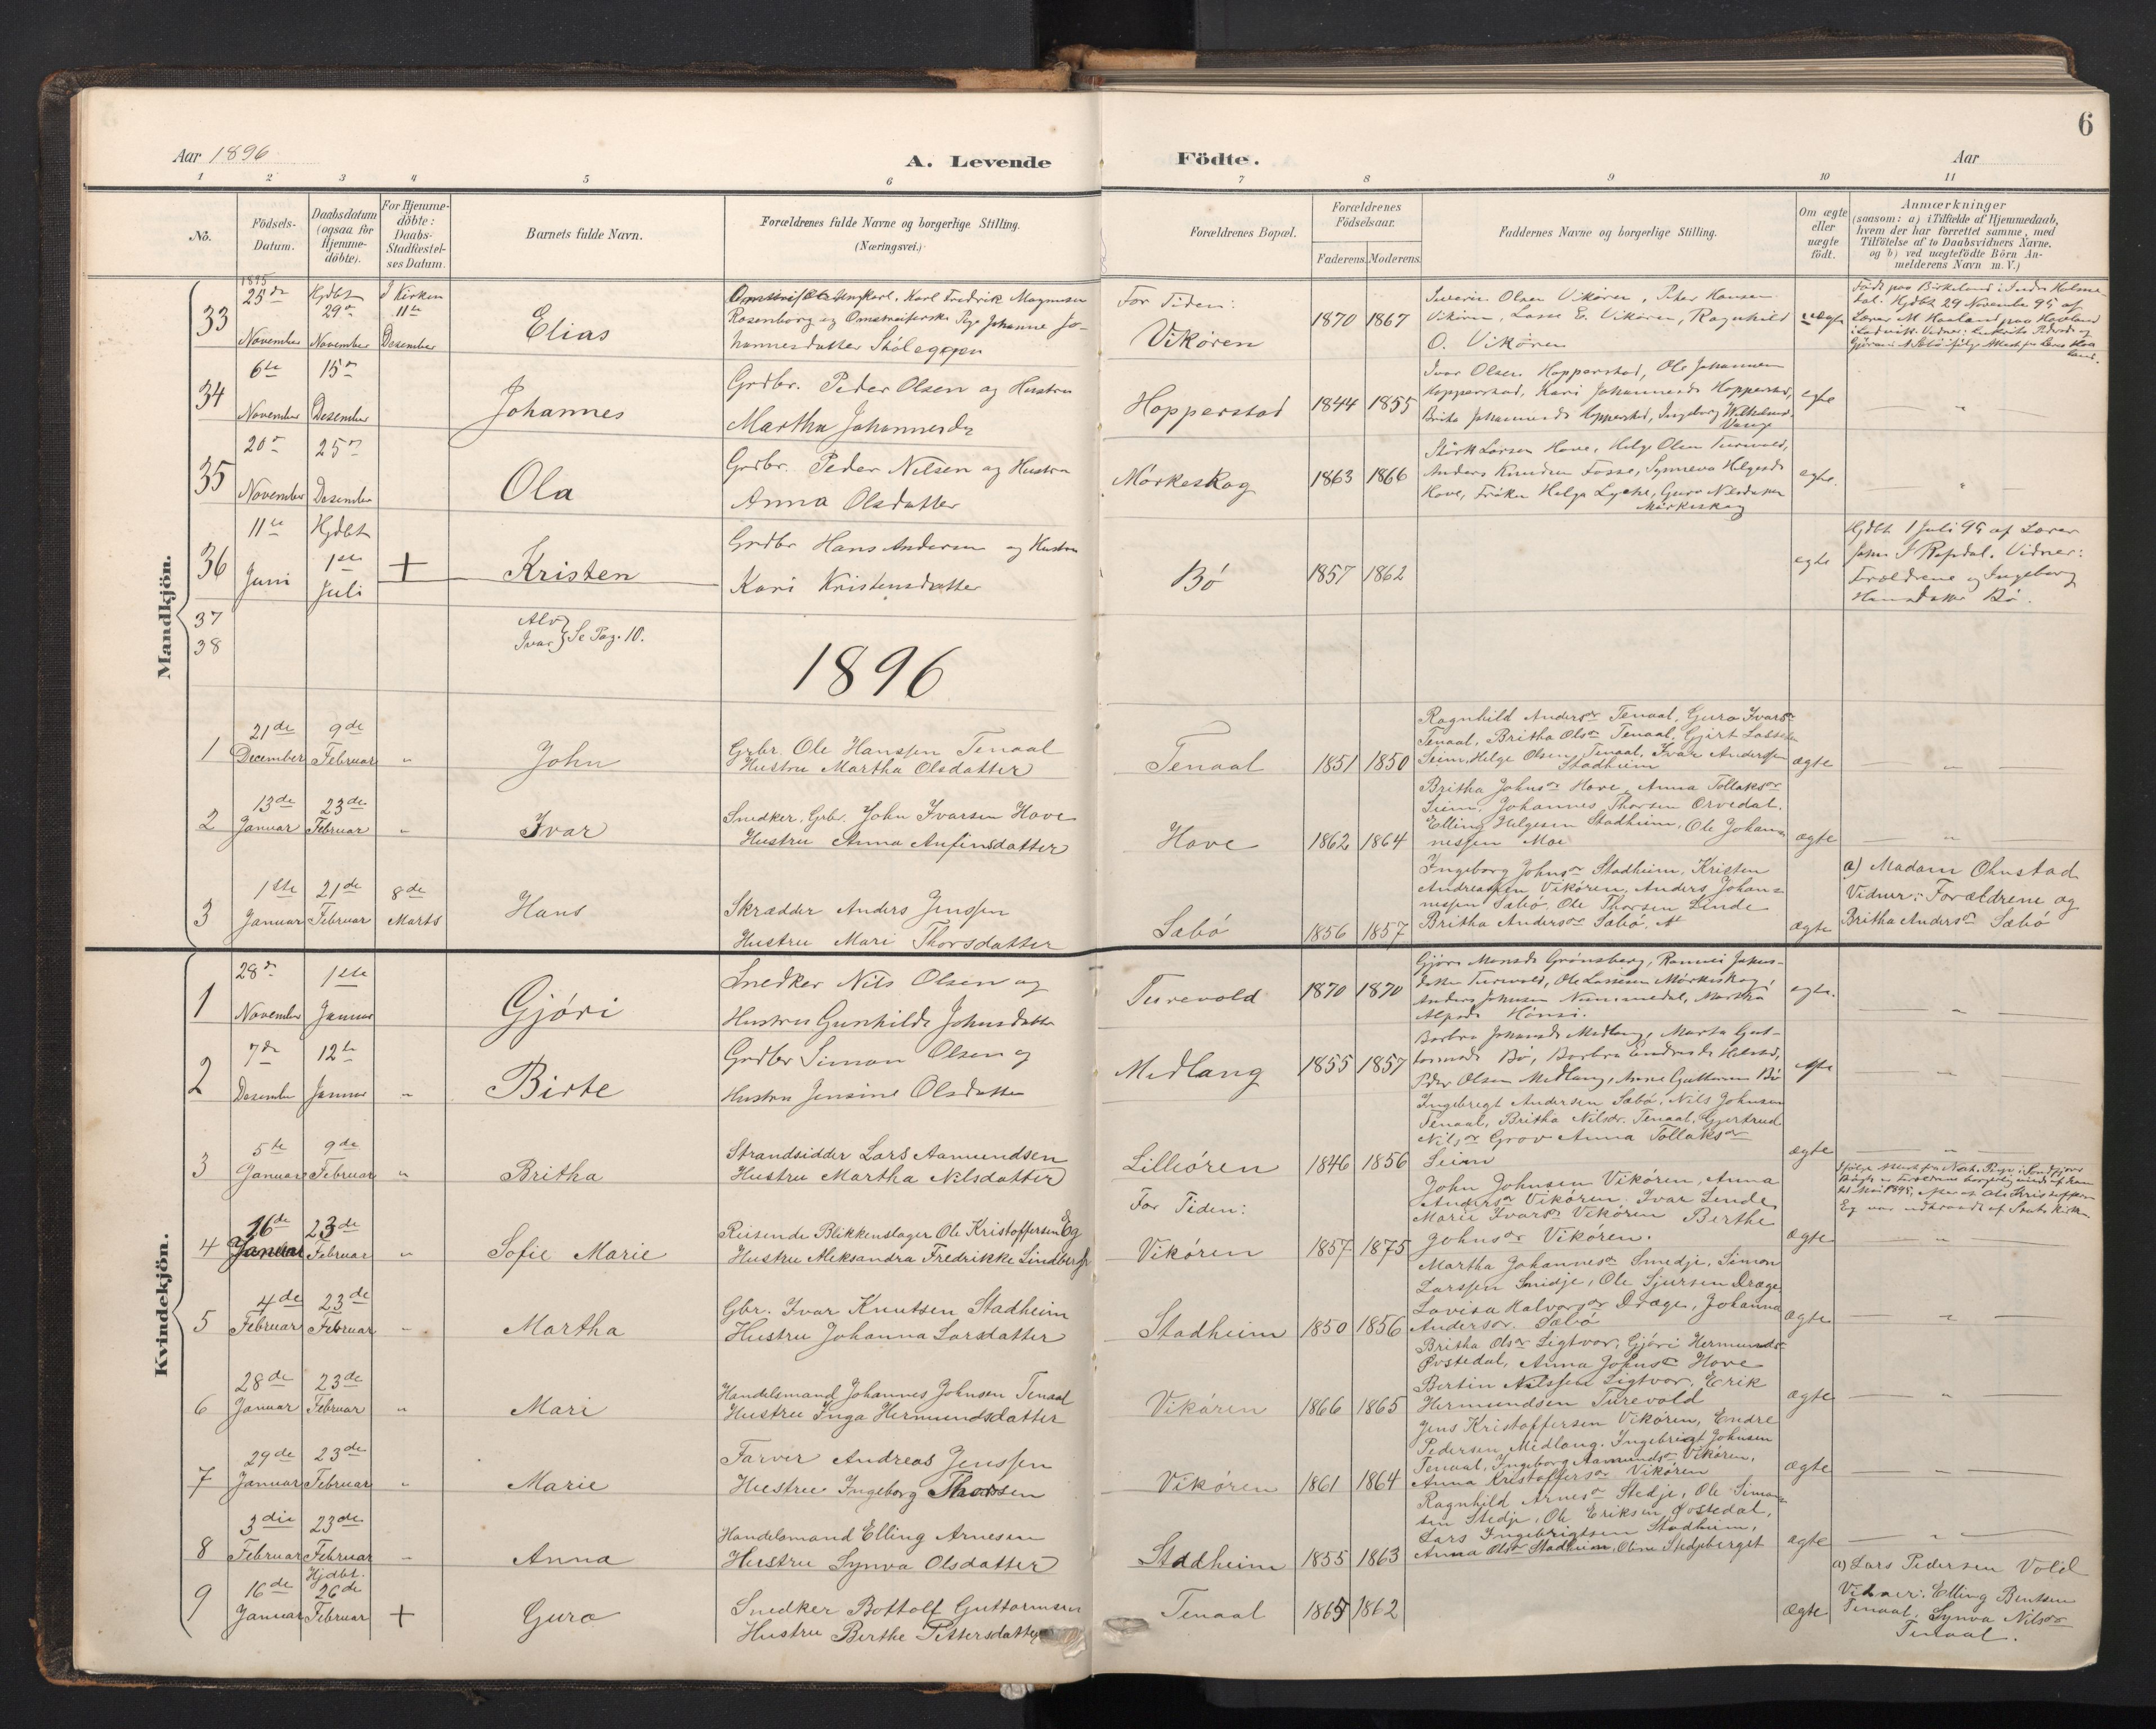 6
Aar 1896
A. Levende
Födte.
Aar
1 2 3 4 5 6 7 8 9 10 11
No.
Födsels-
Datum.
Daabsdatum
(ogsaa for
Hjemme-
döbte).
For Hjemme-
döbte:
Daabs-
Stadfæstel-
ses Datum.
Barnets fulde Navn.
Forældrenes fulde Navne og borgerlige Stilling.
(Næringsvei.)
Forældrenes Bopæl.
Forældrenes
Födselsaar.
Faderens.
Moderens.
Faddernes Navne og borgerlige Stilling.
Om ægte
eller
uægte
födt.
Anmærkninger
(saasom: a) i Tilfælde af Hjemmedaab,
hvem der har forrettet samme, med
Tilföielse af to Daabsvidners Navne.
og b) ved uægtefödte Börn An-
melderens Navn m. V.)
Mandkjön.
33
1895
25de
November
Hjdbt
29de
November
I Kirken
11te
Desember
Elias
Karl Fredrik Magnusen
Rosenborg og Omstreiferske Pige Johanne Jo-
hannesdatter
For Tiden:
Vikören
1870 1867
Severin Olsen Vikören, Peter Hansen
Vikören, Lasse E. Vikören, Ragnhild
O. Vikören
uægte
Födt paa Birkeland i Indre Holme-
dal. Hjdbt 29 November 95 af
Lærer M Haaland paa Haaland
34
6te
November
15de
Desember
Johannes
Grdbr. Peder Olsen og Hustru
Martha Johannesdr
Hopperstad
1844 1855
Ivar Olsen Hopperstad, Ole Johannesen
Hopperstad, Kari Johannesdr Hopperstad,
Brita Johannesdr Hopperstad, Ingeborg
Vange
egte
"
35
20de
November
25de
Desember
Ola
Grdbr. Peder Nilsen og Hustru
Anna Olsdatter
Mörkeskog
1863 1866
Störk Larsen Hove, Helge Olsen Turvold,
Anders Knudsen Fosse, Synneva Helgesdr
Hove, Fröken Helga Lyche, Guro Nilsdatter
Mörkeskog
egte.
"
36
11te
Juni
Hjdbt
1ste
Juli
+
Kristen
Grdbr Hans Andersen og Hustru
Kari Kristensdatter
Bö
1857 1862
egte
Hjdbt 1 Juli 95 af Lærer
Johs J Refsdal. Vidner:
Forældrene og Ingeborg
Hansdatter Bö.
37
38
Alv
Ivar } Se Pag. 10.
1896
1
21de
December
9de
Februar
"
John
Grbr. Ole Hanssen Tenaal
Hustru Martha Olsdatter
Tenaal
1851 1850
Ragnhild Andersdr Tenaal, Guro Ivarsdr
Tenaal, Britha Olsdr Tenaal, Gjert Lassesen
Seim, Helge Olsen Tenaal, Ivar Anderssen
Stadheim
ægte
"
2
13de
Januar
23de
Februar
"
Ivar
Snedker, Grbr. John Ivarsen Hove
Hustru Anna Anfinsdatter
Hove
1862 1864
Britha Johnsdr Hove, Anna Tollaksdr
Seim, Johannes Thorsen Orvedal,
Elling Helgesen Stadheim, Ole Johan-
nessen Moe
ægte
"
3
1ste
Januar
21de
Februar
8de
Marts
Hans
Skrædder Anders Jenssen
Hustru Mari Thorsdatter
Sæbö
1856 1857
Ingeborg Johnsdr Stadheim, Kristen
Andreassen Vikören, Anders Johan-
nessen Sæbö, Ole Thorsen Linde
Britha Andersdr Sæbö.
ægte
a) Madam Ohnstad
Vidner: Forældrene og
Britha Andersdr Sæbö
Kvindekjön.
1
28de
November
1ste
Januar
Gjöri
Snedker Nils Olsen og
Hustru Gunhilde Johnsdatter
Turevold
1870 1870
Gjöri Monsdr Grönsberg, Rannei Johns-
datter Turvold, Ole Larssen Mörkeskog,
Anders Johnsen Nummedal, Martha
Hönsi.
egte.
"
2
7de
Desember
12te
Januar
"
Birte
Grdbr Simon Olsen og
Hustru Jensine Olsdatter
Midlang
1855 1857
Barbra Johansdr Midlang, Marta Gut-
tormsdr Bö, Barbra Endresdr
Peder Olsen Midlang, Arne Guttormsen Bö
egte
"
3
5te
Januar
9de
Februar
"
Britha
Strandsidder Lars Aamundsen
Hustru Martha Nilsdatter
Lilleören
1846 1856
Ingebregt Andersen Sæbö, Nils Johnsen
Tenaal, Britha Nilsdr. Tenaal, Gjertrud
Nilsdr Grov Anna Tollaksdr
Seim
ægte
"
4
16de
Januar
23de
Februar
"
Sofie Marie
Reisende Blikkenslager Ole Kristoffersen Eg
Hustru Aleksandra Fredrikke Lindbergh
For Tiden:
Vikören
1857 1875
John Johnsen Vikören, Anna
Andersdr Vikören. Ivar Linde
Marie Ivarsdr Vikören Berthe
Johnsdr Vikören.
ægte
"
5
4de
Februar
23de
Februar
"
Martha
Gbr. Ivar Knutsen Stadheim
Hustru Johanna Larsdatter
Stadheim
1850 1856
Martha Johannesdr Smedje, Simon
Larssen Smidje, Ole Sjursen Dræge
Lovisa Halvorsdr Dræge, Johanna
Andersdr. Sæbö
ægte
"
6
28de
Januar
23de
Februar
"
Mari
Handelsmand Johannes Johnsen Tenaal
Hustru Inga Hermundsdatter
Vikören
1866 1865
Britha Olsdr Ligtvor, Gjöri Hermundsdr
Övstedal, Anna Johnsdr Hove
Bertin Nilssen Ligtvor, Erik
Hermundsen Turevold
ægte
"
7
29de
Januar
23de
Februar
"
Marie
Farver Andreas Jenssen
Hustru Ingeborg Thorsen
Vikören
1861 1864
Jens Kristoffersen Vikören, Endre
Pedersen Midlang. Ingebrigt Johnsen
Tenaal, Ingeborg Aamundsdr Vikören,
Anna Kristoffersdr Vikören
ægte
"
8
3die
Februar
23de
Februar
"
Anna
Handelsmand Elling Arnesen
Hustru Synva Olsdatter
Stadheim
1855 1863
Ragnhild Arnesdr Stedje, Ole Simon-
sen Stedje, Ole Eriksen Övstedal,
Lars Ingebrigtsen Stadheim,
Anna Olsdr Stadheim, Oline Stedjeberget
ægte
"
9
16de
Januar
Hjdbt.
26de
Februar
+
Guro
Snedker Bottolf Guttormsen
Hustru Berthe Pettersdatter
Tenaal
1865 1862
ægte
a) Lars Pedersen Vold
Vidner: Elling Bentsen
Tenaal, Synva Nilsdr
Tenaal.